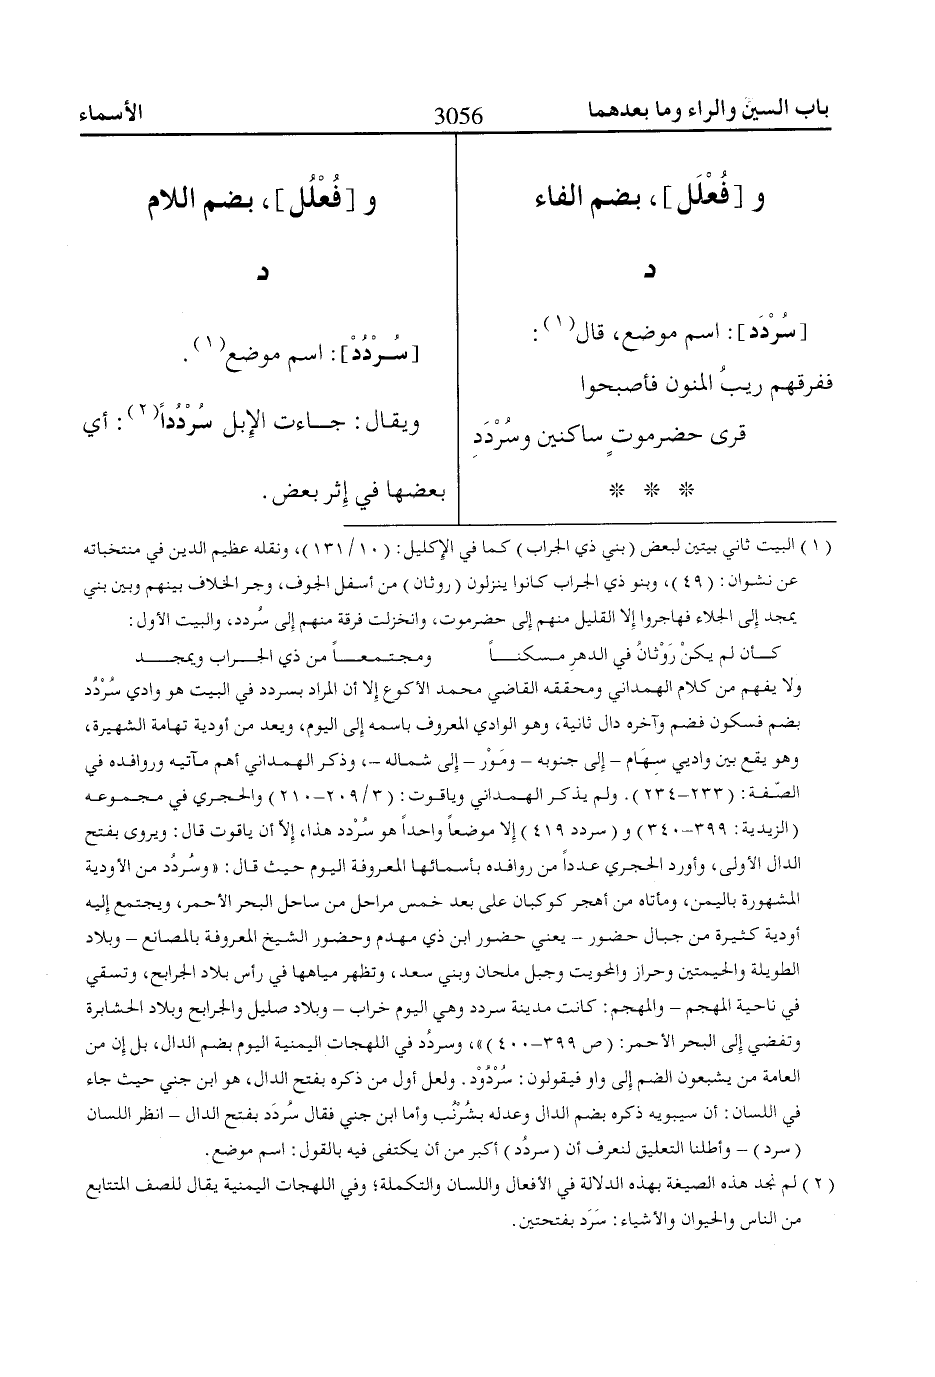 باب السين والراء وما بعدهما
3056
الأسماء
و [فُعْلَل]، بضم الفاء
د
[سُرْدَد]: اسم موضع، قال(١):
ففرقهم ريبُ المنون فأصبحوا
قرى حضرموتٍ ساكنين وسُرْدَدِ
* * *
و [فُعْلُل]، بضم اللام
د
[سُـرْدُدْ]: اسم موضع(١).
ويقال: جـــاءت الإبل سُرْدُداً(٢): أي
بعضها في إثر بعض.
(١) البيت ثاني بيتين لبعض (بني ذي الجراب) كما في الإكليل: (١٣١/١٠)، ونقله عظيم الدين في منتخباته
عن نشوان: (٤٩)، وبنو ذي الجراب كانوا ينزلون (روثان) من أسفل الجوف، وجر الخلاف بينهم وبين بني
يمجد إلى الجلاء فهاجروا إلا القليل منهم إلى حضرموت، وانخزلت فرقة منهم إلى سُردد، والبيت الأول:
كــأن لم يكنْ رَوْثانُ في الدهرِ مـسكنــاً ومجـتـمعــاً من ذي الجـراب ويمجــد
ولا يفهم من كلام الهمداني ومحققه القاضي محمد الأكوع إلا أن المراد بسردد في البيت هو وادي سُرْدُد
بضم فسكون فضم وآخره دال ثانية، وهو الوادي المعروف باسمه إلى اليوم، ويعد من أودية تهامة الشهيرة،
وهو يقع بين واديي سِهَام – إلى جنوبه – ومَوْر – إلى شماله –، وذكر الهمداني أهم مآتيه وروافده في
الصّفة: (٢٣٣–٢٣٤). ولم يذكر الهـمداني وياقوت: (٢٠٩/٣–٢١٠) والحجري في مجـموعه
(الزيدية: ٣٩٩–٣٤٠) و (سردد ٤١٩) إلا موضعاً واحداً هو سُرْدد هذا، إلاّ أن ياقوت قال: ويروى بفتح
الدال الأولى، وأورد الحجري عدداً من روافده بأسمائها المعروفة اليوم حيث قال: «وسُردُد من الأودية
المشهورة باليمن، ومأتاه من أهجر كوكبان على بعد خمس مراحل من ساحل البحر الأحمر، ويجتمع إليه
أودية كثيرة من جبال حضور – يعني حضور ابن ذي مهدم وحضور الشيخ المعروفة بالمصانع – وبلاد
الطويلة والحيمتين وحراز والمحويت وجبل ملحان وبني سعد، وتظهر مياهها في رأس بلاد الجرابح، وتسقي
في ناحية المهجم – والمهجم: كانت مدينة سردد وهي اليوم خراب – وبلاد صليل والجرابح وبلاد الحشابرة
وتفضي إلى البحر الأحمر: (ص ٣٩٩–٤٠٠)»، وسردُد في اللهجات اليمنية اليوم بضم الدال، بل إن من
العامة من يشبعون الضم إلى واو فيقولون: سُرْدُوْد. ولعل أول من ذكره بفتح الدال، هو ابن جني حيث جاء
في اللسان: أن سيبويه ذكره بضم الدال وعدله بشُرْنُب وأما ابن جني فقال سُردَد بفتح الدال – انظر اللسان
(سرد) – وأطلنا التعليق لنعرف أن (سردُد) أكبر من أن يكتفى فيه بالقول: اسم موضع.
(٢) لم نجد هذه الصيغة بهذه الدلالة في الأفعال واللسان والتكملة؛ وفي اللهجات اليمنية يقال للصف المتتابع
من الناس والحيوان والأشياء: سَرَد بفتحتين.